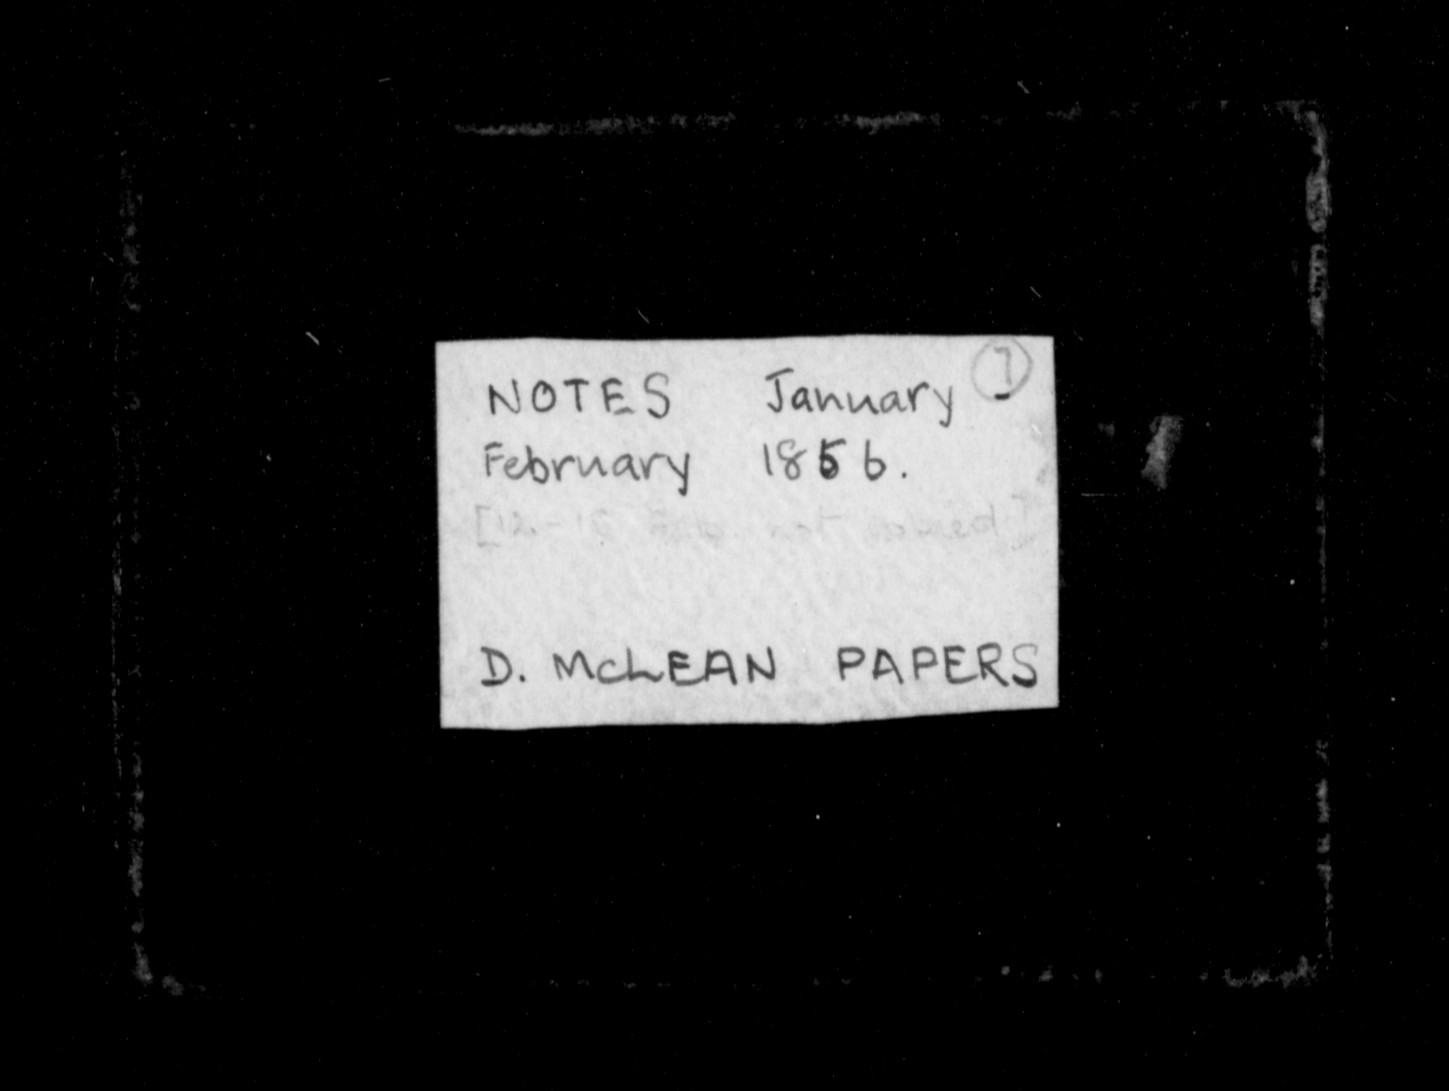 NOTES January
February 1856.
[12-18 Feb. not copied]
D. McLEAN PAPERS